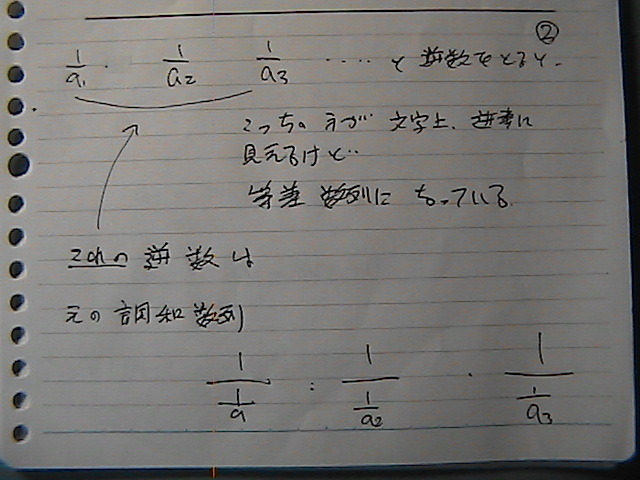 ②
1/a₁ . 1/a₂ 1/a₃ ‥‥ と 逆数をとると.
こっちの方が 文字上、逆数に
見えるけど‥
等差 数列に なっている
これの 逆数は
元の 調和数列
1/(1/a) : 1/(1/a₂) . 1/(1/a₃)